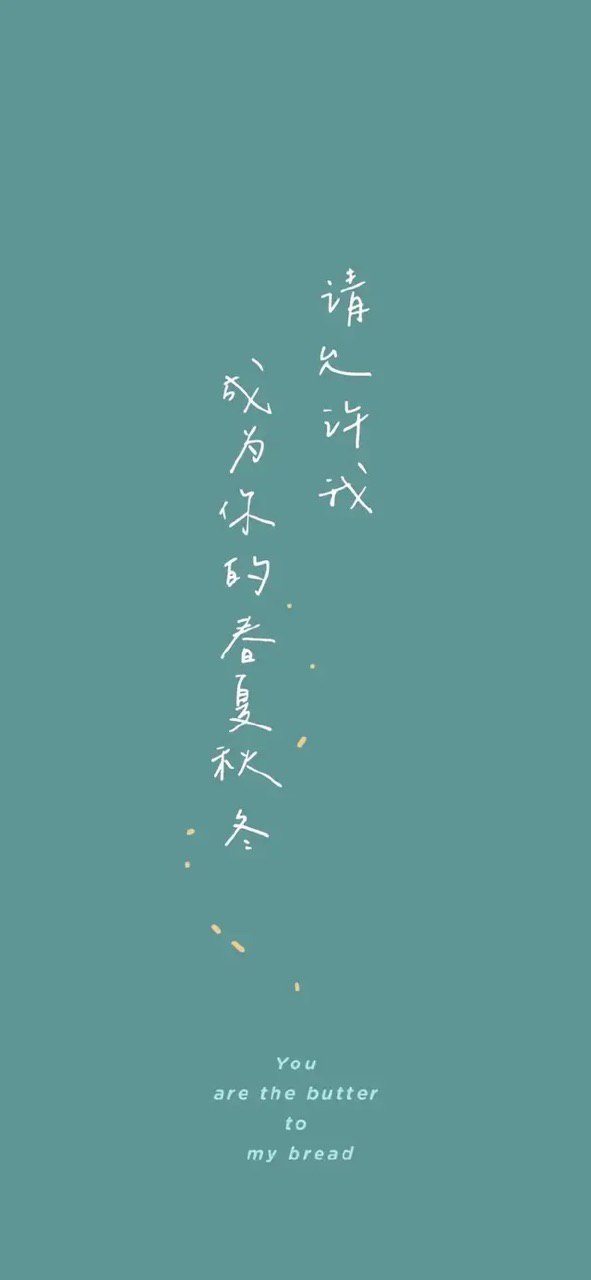 请允许我
成为你的春夏秋冬
You
are the butter
to
my bread